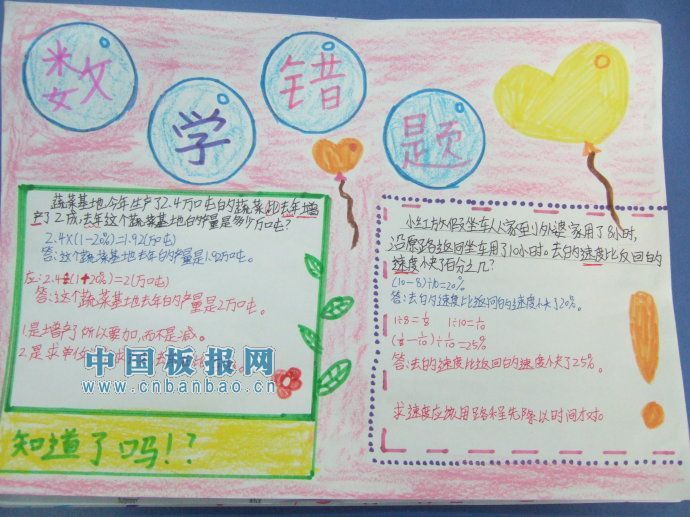 数学错题
蔬菜基地今年生产了2.4万吨的蔬菜,比去年增
产了2成,去年这个蔬菜基地的产量是多少万吨?
2.4×(1-20%)=1.92(万吨)
答:这个蔬菜基地去年的产量是1.92万吨。
2.4÷(1+20%)=2(万吨)
答:这个蔬菜基地去年的产量是2万吨。
1.是增产了所以要加,而不是减。
2.是求单位
中国板报网
www.cnbanbao.cn
知道了吗!?
小红放假坐车从家到外婆家用了8小时,
沿原路返回坐车用了10小时。去的速度比返回的
速度快了百分之几?
(10-8)÷10=20%
答:去的速度比返回的速度快了20%。
1÷8=1/8 1÷10=1/10
(1/8-1/10)÷1/10=25%
答:去的速度比返回的速度快了25%
求速度应该用路程先除以时间才对。